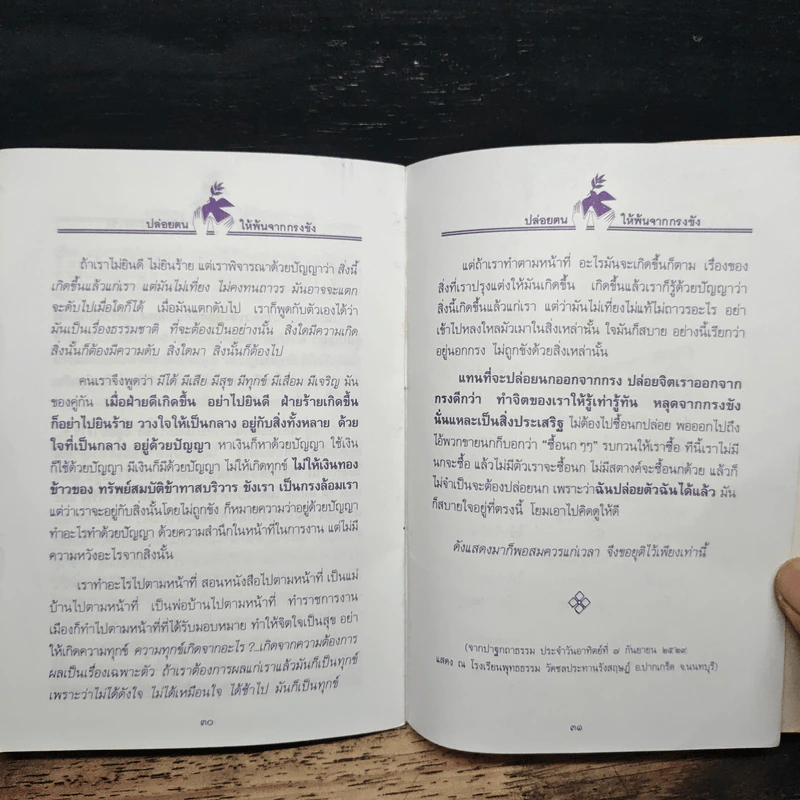 ปล่อยตน ให้พ้นจากกรงขัง
ถ้าเราไม่ยินดี ไม่ยินร้าย แต่เราพิจารณาด้วยปัญญาว่า สิ่งนี้
เกิดขึ้นแล้วแก่เรา แต่มันไม่เที่ยง ไม่คงทนถาวร มันอาจจะแตก
จะดับไปเมื่อใดก็ได้ เมื่อมันแตกดับไป เราก็พูดกับตัวเองได้ว่า
มันเป็นเรื่องธรรมชาติ ที่จะต้องเป็นอย่างนั้น สิ่งใดมีความเกิด
สิ่งนั้นก็ต้องมีความดับ สิ่งใดมา สิ่งนั้นก็ต้องไป
คนเราจึงพูดว่า มีได้ มีเสีย มีสุข มีทุกข์ มีเสื่อม มีเจริญ มัน
ของคู่กัน เมื่อฝ่ายดีเกิดขึ้น อย่าไปยินดี ฝ่ายร้ายเกิดขึ้น
ก็อย่าไปยินร้าย วางใจให้เป็นกลาง อยู่กับสิ่งทั้งหลาย ด้วย
ใจที่เป็นกลาง อยู่ด้วยปัญญา หาเงินก็หาด้วยปัญญา ใช้เงิน
ก็ใช้ด้วยปัญญา มีเงินก็มีด้วยปัญญา ไม่ให้เกิดทุกข์ ไม่ให้เงินทอง
ข้าวของ ทรัพย์สมบัติข้าทาสบริวาร ขังเรา เป็นกรงล้อมเรา
แต่ว่าเราจะอยู่กับสิ่งนั้นโดยไม่ถูกขัง ก็หมายความว่าอยู่ด้วยปัญญา
ทำอะไรทำด้วยปัญญา ด้วยความสำนึกในหน้าที่ในการงาน แต่ไม่มี
ความหวังอะไรจากสิ่งนั้น
เราทำอะไรไปตามหน้าที่ สอนหนังสือไปตามหน้าที่ เป็นแม่
บ้านไปตามหน้าที่ เป็นพ่อบ้านไปตามหน้าที่ ทำราชการงาน
เมืองก็ทำไปตามหน้าที่ที่ได้รับมอบหมาย ทำให้จิตใจเป็นสุข อย่า
ให้เกิดความทุกข์ ความทุกข์เกิดจากอะไร ?..เกิดจากความต้องการ
ผลเป็นเรื่องเฉพาะตัว ถ้าเราต้องการผลแก่เราแล้วมันก็เป็นทุกข์
เพราะว่าไม่ได้ดังใจ ไม่ได้เหมือนใจ ได้ช้าไป มันก็เป็นทุกข์
๓๐
ปล่อยตน ให้พ้นจากกรงขัง
แต่ถ้าเราทำตามหน้าที่ อะไรมันจะเกิดขึ้นก็ตาม เรื่องของ
สิ่งที่เราปรุงแต่งให้มันเกิดขึ้น เกิดขึ้นแล้วเราก็รู้ด้วยปัญญาว่า
สิ่งนี้เกิดขึ้นแล้วแก่เรา แต่ว่ามันไม่เที่ยงไม่แท้ไม่ถาวรอะไร อย่า
เข้าไปหลงใหลมัวเมาในสิ่งเหล่านั้น ใจมันก็สบาย อย่างนี้เรียกว่า
อยู่นอกกรง ไม่ถูกขังด้วยสิ่งเหล่านั้น
แทนที่จะปล่อยนกออกจากกรง ปล่อยจิตเราออกจาก
กรงดีกว่า ทำจิตของเราให้รู้เท่ารู้ทัน หลุดจากกรงขัง
นั่นแหละเป็นสิ่งประเสริฐ ไม่ต้องไปซื้อนกปล่อย พอออกไปถึง
ไอ้พวกขายนกก็บอกว่า “ซื้อนก ๆๆ” รบกวนให้เราซื้อ ทีนี้เราไม่มี
นกจะซื้อ แล้วไม่มีตัวเราจะซื้อนก ไม่มีสตางค์จะซื้อนกด้วย แล้วก็
ไม่จำเป็นจะต้องปล่อยนก เพราะว่าฉันปล่อยตัวฉันได้แล้ว มัน
ก็สบายใจอยู่ที่ตรงนี้ โยมเอาไปคิดดูให้ดี
ดังแสดงมาก็พอสมควรแก่เวลา จึงขอยุติไว้เพียงเท่านี้
(จากปาฐกถาธรรม ประจำวันอาทิตย์ที่ ๗ กันยายน ๒๕๒๙
แสดง ณ โรงเรียนพุทธธรรม วัดชลประทานรังสฤษฎ์ อ.ปากเกร็ด จ.นนทบุรี)
๓๑